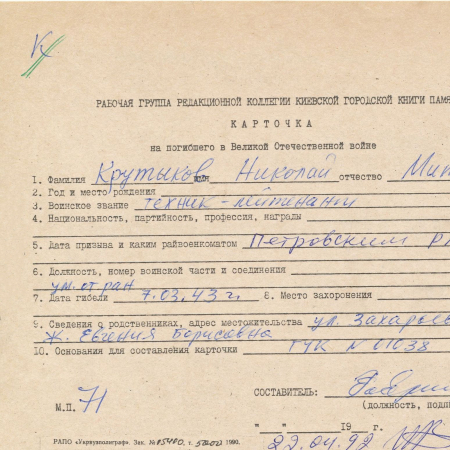 К
РАБОЧАЯ ГРУППА РЕДАКЦИОННОЙ КОЛЛЕГИИ КИЕВСКОЙ ГОРОДСКОЙ КНИГИ ПАМЯ
КАРТОЧКА
на погибшего в Великой Отечественной войне
1. Фамилия Крутыков имя Николай отчество Мит
2. Год и место рождения
3. Воинское звание техник-лейтенант
4. Национальность, партийность, профессия, награды
5. Дата призыва и каким райвоенкоматом Петровским Р
6. Должность, номер воинской части и соединения
ум. от ран
7. Дата гибели 7.03.43 г. 8. Место захоронения
9. Сведения о родственниках, адрес местожительства ул. Захарьев
ж. Евгения Борисовна
10. Основания для составления карточки ГУК N 01038
СОСТАВИТЕЛЬ:
(должность, подпи
М.П. 71
"__" ____ 19 г.
22.04.92
РАПО «Укрвузполиграф». Зак. № 05400. т. 50000 1990.